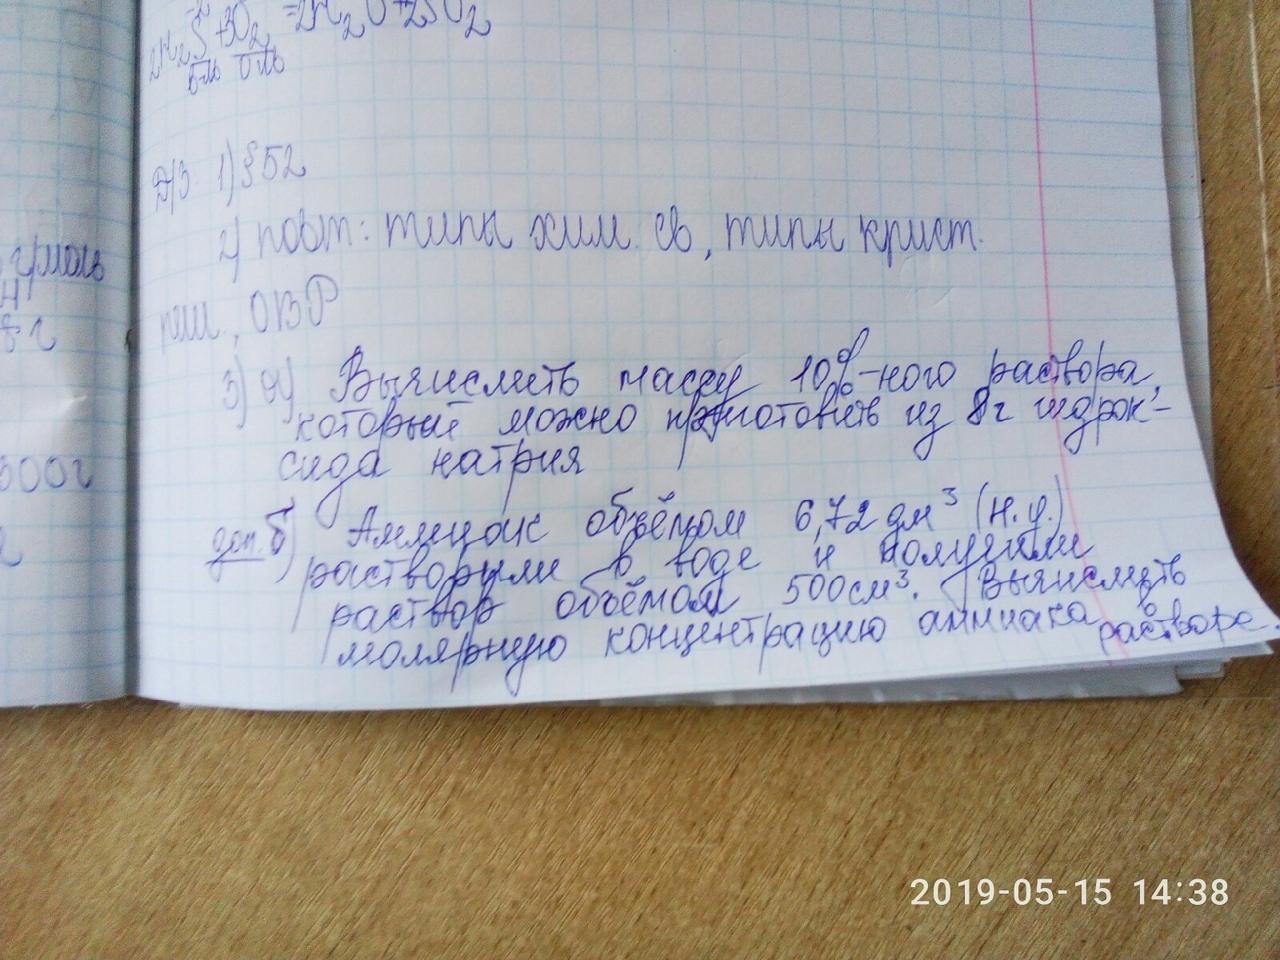 2H2S+3O2=2H2O+2SO2
-2
Д/З. 1) §52
2) повт: типы хим. св, типы крист.
г/моль
Н
8 г
реш., ОВР
3) а) Вычислить массу 10%-ного раствора,
который можно приготовить из 8г гидрок-
сида натрия
500г
доп. б) Аммиак объёмом 6,72 дм³ (н.у.)
растворили в воде и получили
раствор объёмом 500см³. Вычислить
молярную концентрацию аммиака в
растворе.
2019-05-15 14:38